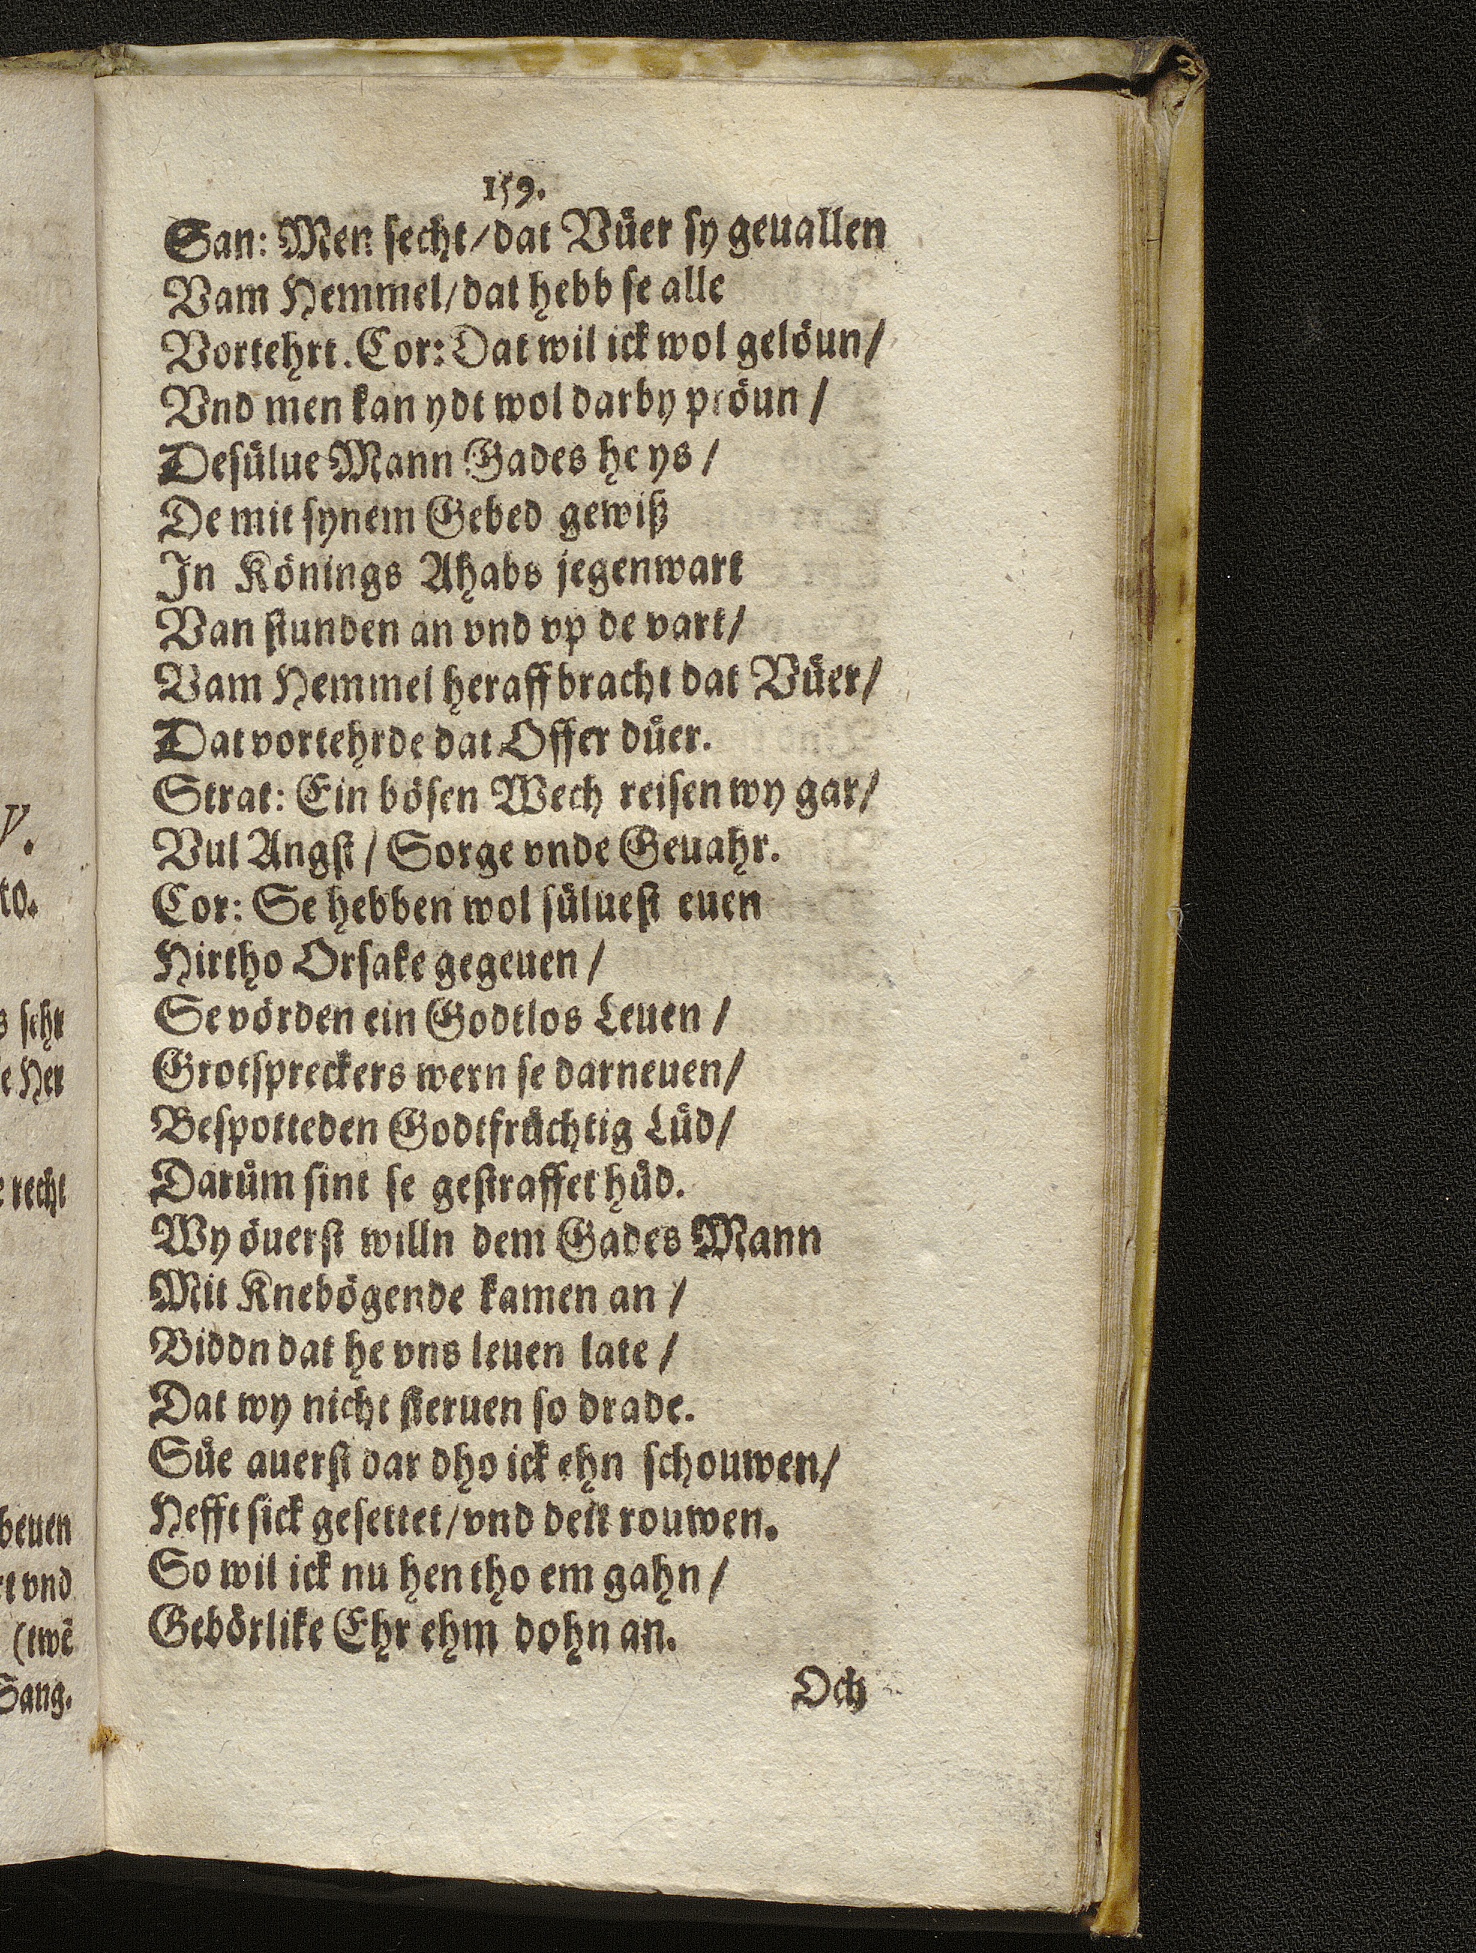 159.
San: Men secht/dat Vüer sy geuallen
Vam Hemmel/dat hebb se alle
Vortehrt. Cor: Dat wil ick wol gelöun/
Vnd men kan ydt wol darby pröun/
Desülue Mann Gades he ys/
De mit synem Gebed gewiß
In Könings Ahabs jegenwart
Van stunden an vnd vp de vart/
Vam Hemmel heraff bracht dat Vüer/
Dat vortehrde dat Offer düer.
Strat: Ein bösen Wech reisen wy gar/
Vul Angst/Sorge vnde Geuahr.
Cor: Se hebben wol süluest euen
Hirtho Orsake gegeuen/
Se vörden ein Godtlos Leuen/
Grotspreckers wern se darneuen/
Bespotteden Godtfrüchtig Lüd/
Darüm sint se gestraffet hüd.
Wy öuerst willn dem Gades Mann
Mit Knebögende kamen an/
Biddn dat he vns leuen late/
Dat wy nicht steruen so drade.
Süe auerst dar dho ick ehn schouwen/
Hefft sick gesettet/vnd deit rouwen.
So wil ick nu hen tho em gahn/
Gebörlike Ehr ehm dohn an.
Och
y.
to.
s sehr
e Her
e recht
beuen
rt vnd
(twē
Sang.